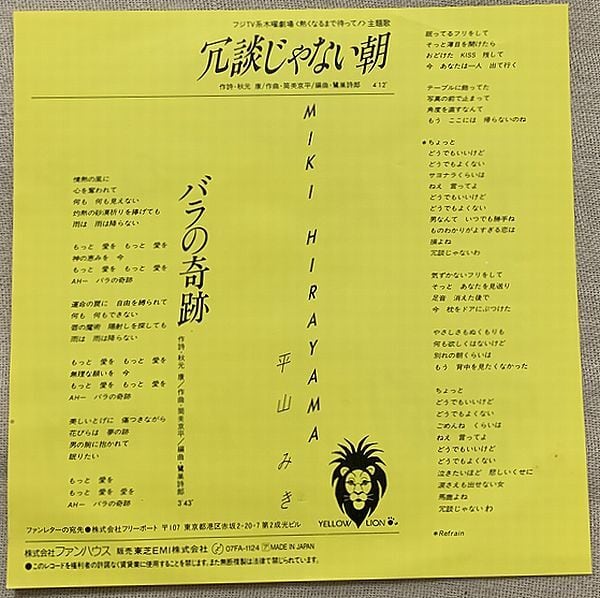 フジTV系木曜劇場〈熱くなるまで待って!〉主題歌
冗談じゃない朝
作詩・秋元 康/作曲・筒美京平/編曲・鷺巣詩郎 4'12"
眠ってるフリをして
そっと薄目を開けたら
おどけた KISS 残して
今 あなたは一人 出て行く
テーブルに飾ってた
写真の前で止まって
角度を直すなんて
もう ここには 帰らないのね
*ちょっと
どうでもいいけど
どうでもよくない
サヨナラくらいは
ねえ 言ってよ
どうでもいいけど
どうでもよくない
男なんて いつでも勝手ね
ものわかりがよすぎる恋は
損よね
冗談じゃないわ
気づかないフリをして
そっと あなたを見送り
足音 消えた後で
今 枕をドアにぶつけた
やさしさもぬくもりも
何も欲しくはないけど
別れの朝くらいは
もう 背中を見たくなかった
ちょっと
どうでもいいけど
どうでもよくない
ごめんね くらいは
ねえ 言ってよ
どうでもいいけど
どうでもよくない
泣きたいほど 悲しいくせに
涙さえも出せない女
馬鹿よね
冗談じゃないわ
*Refrain
MIKI HIRAYAMA
平山みき
バラの奇跡
作詩・秋元 康/作曲・筒美京平/編曲・鷺巣詩郎
3'43"
情熱の風に
心を奪われて
何も 何も見えない
灼熱の砂漠祈りを捧げても
雨は 雨は降らない
もっと 愛を もっと 愛を
神の恵みを 今
もっと 愛を もっと 愛を
AH— バラの奇跡
運命の罠に 自由を縛られて
何も 何もできない
唇の魔術 陽射しを探しても
雨は 雨は降らない
もっと 愛を もっと 愛を
無理な願いを 今
もっと 愛を もっと 愛を
AH— バラの奇跡
美しいとげに 傷つきながら
花びらは 夢の跡
男の胸に抱かれて
眠りたい
もっと 愛を
もっと 愛を 愛を
AH— バラの奇跡
YELLOW LION
ファンレターの宛先●株式会社フリーポート 〒107 東京都港区赤坂2-20-7 第2成光ビル
株式会社ファンハウス 販売東芝EMI株式会社 07FA-1124 MADE IN JAPAN
●このレコードを権利者の許諾なく賃貸業に使用することを禁じます。また無断複製は法律で禁じられています。